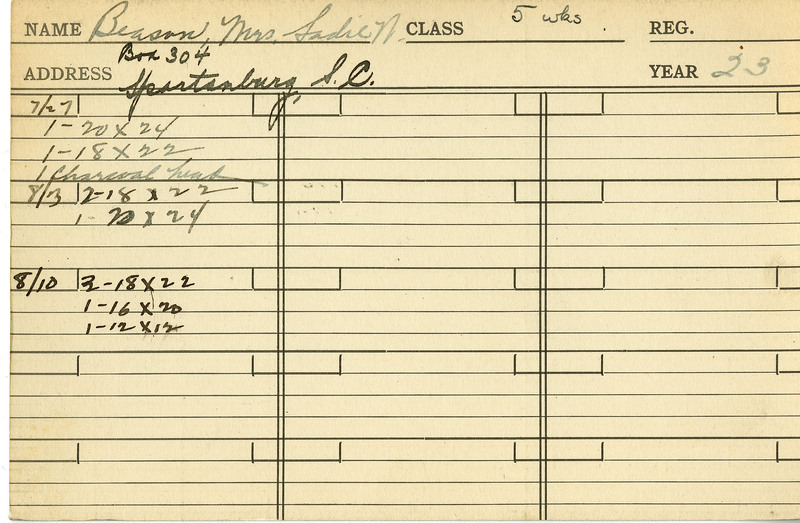 NAME Beason, Mrs. Sadie N. CLASS 5 wks REG.
Box 304
ADDRESS Spartanburg, S.C. YEAR 23
7/27
1-20 x 24
1-18 x 22
1 Charcoal head
8/3 2-18 x 22
1- 20 x 24
8/10 2-18 x 22
1-16 x 20
1-12 x 12